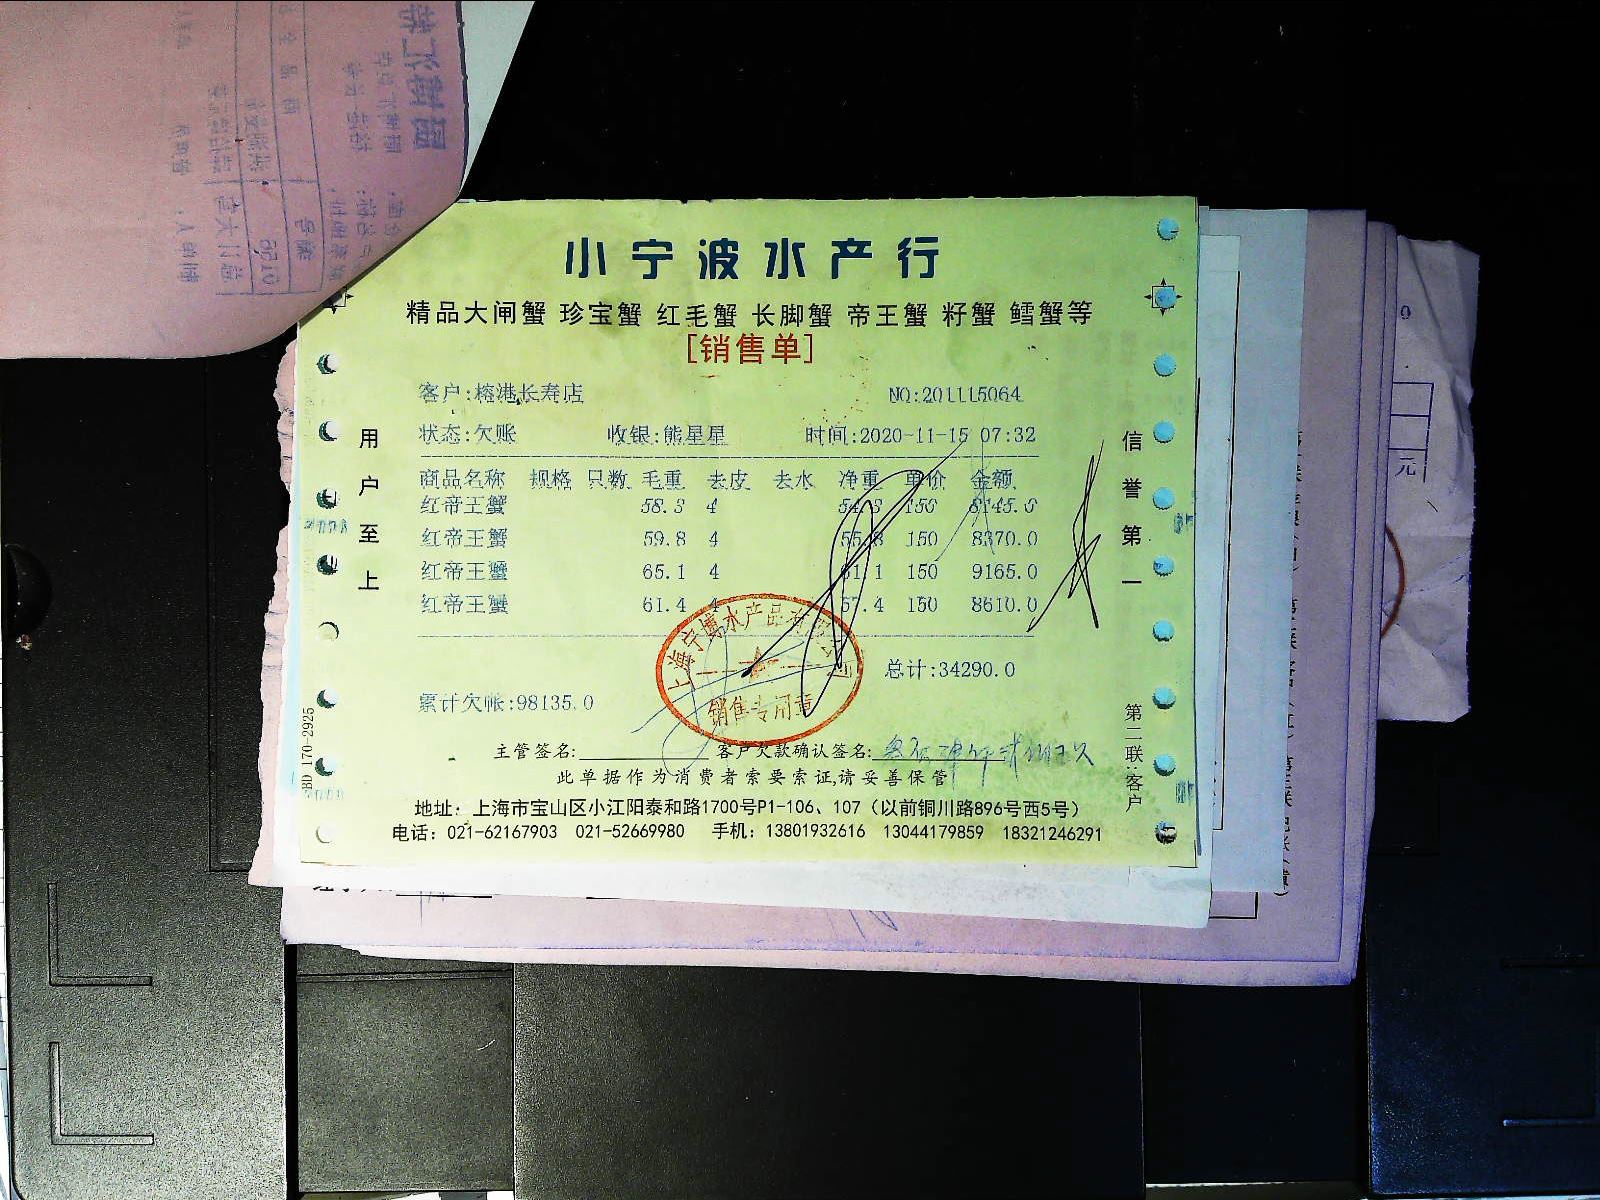 小宁波水产行
精品大闸蟹 珍宝蟹 红毛蟹 长脚蟹 帝王蟹 籽蟹 鳕蟹等
[销售单]
客户:榕港长寿店 NO:201115064
状态:欠账 收银:熊星星 时间:2020-11-15 07:32
商品名称 规格 只数 毛重 去皮 去水 净重 单价 金额
红帝王蟹 58.3 4 54.3 150 8145.0
红帝王蟹 59.8 4 55.8 150 8370.0
红帝王蟹 65.1 4 61.1 150 9165.0
红帝王蟹 61.4 4 57.4 150 8610.0
总计:34290.0
累计欠帐:98135.0
上海宁博水产品有限公司
销售专用章
主管签名: 客户欠款确认签名:
此单据作为消费者索要索证,请妥善保管
地址: 上海市宝山区小江阳泰和路1700号P1-106、107（以前铜川路896号西5号）
电话: 021-62167903 021-52669980 手机: 13801932616 13044179859 18321246291
用户至上
信誉第一
第二联:客户
BD 170-2925
元